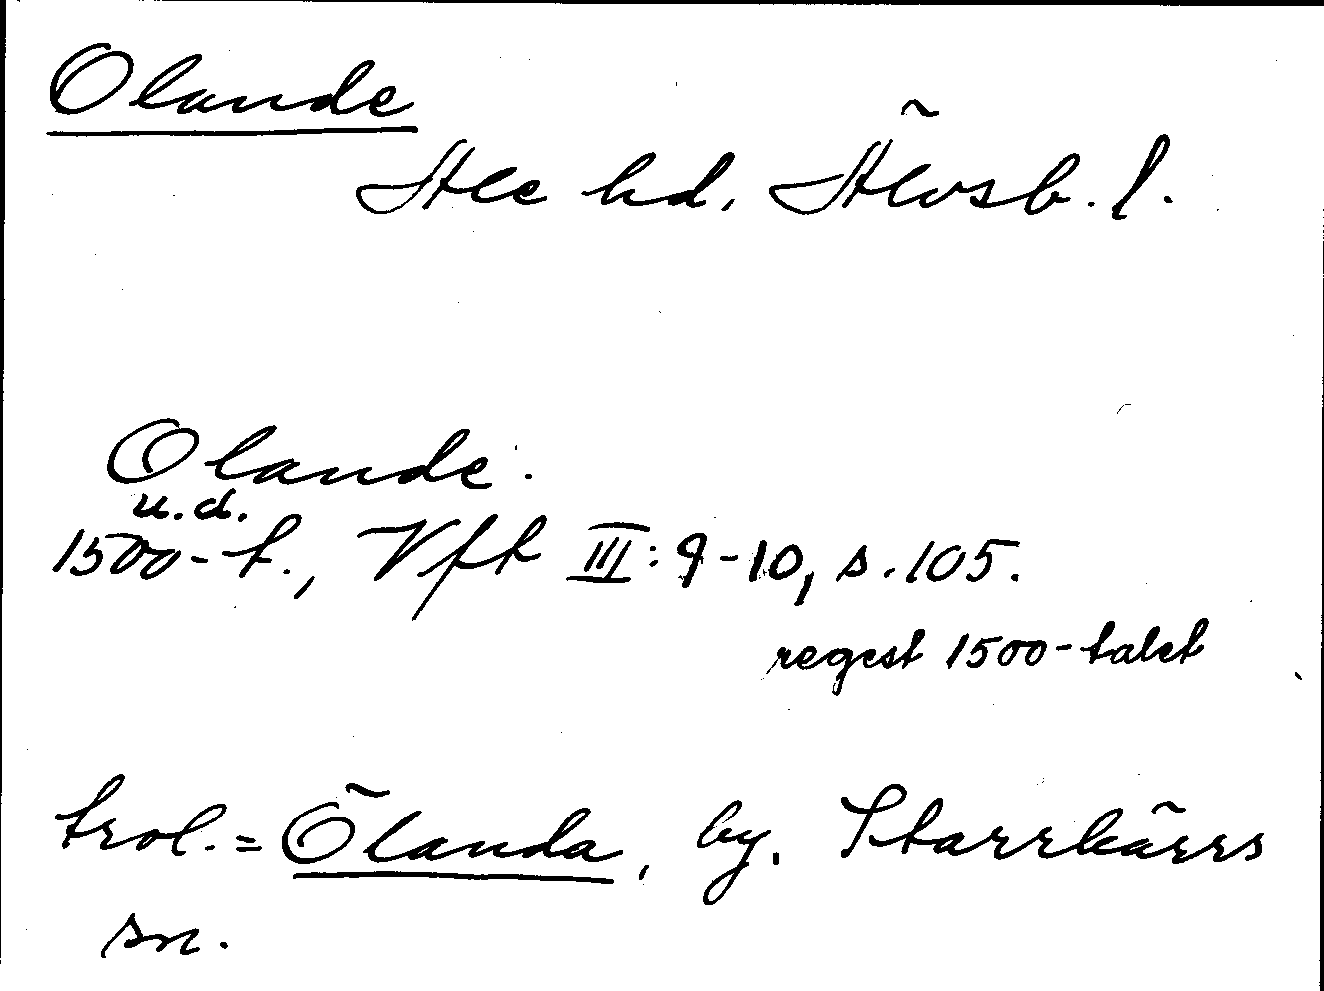 Olande
Ale hd, Älvsb. l.
Olande.
u.d.
1500-t., Vft III: 9-10, s. 105.
regest 1500-talet
trol. = Ölanda, by, Starrkärrs
sn.